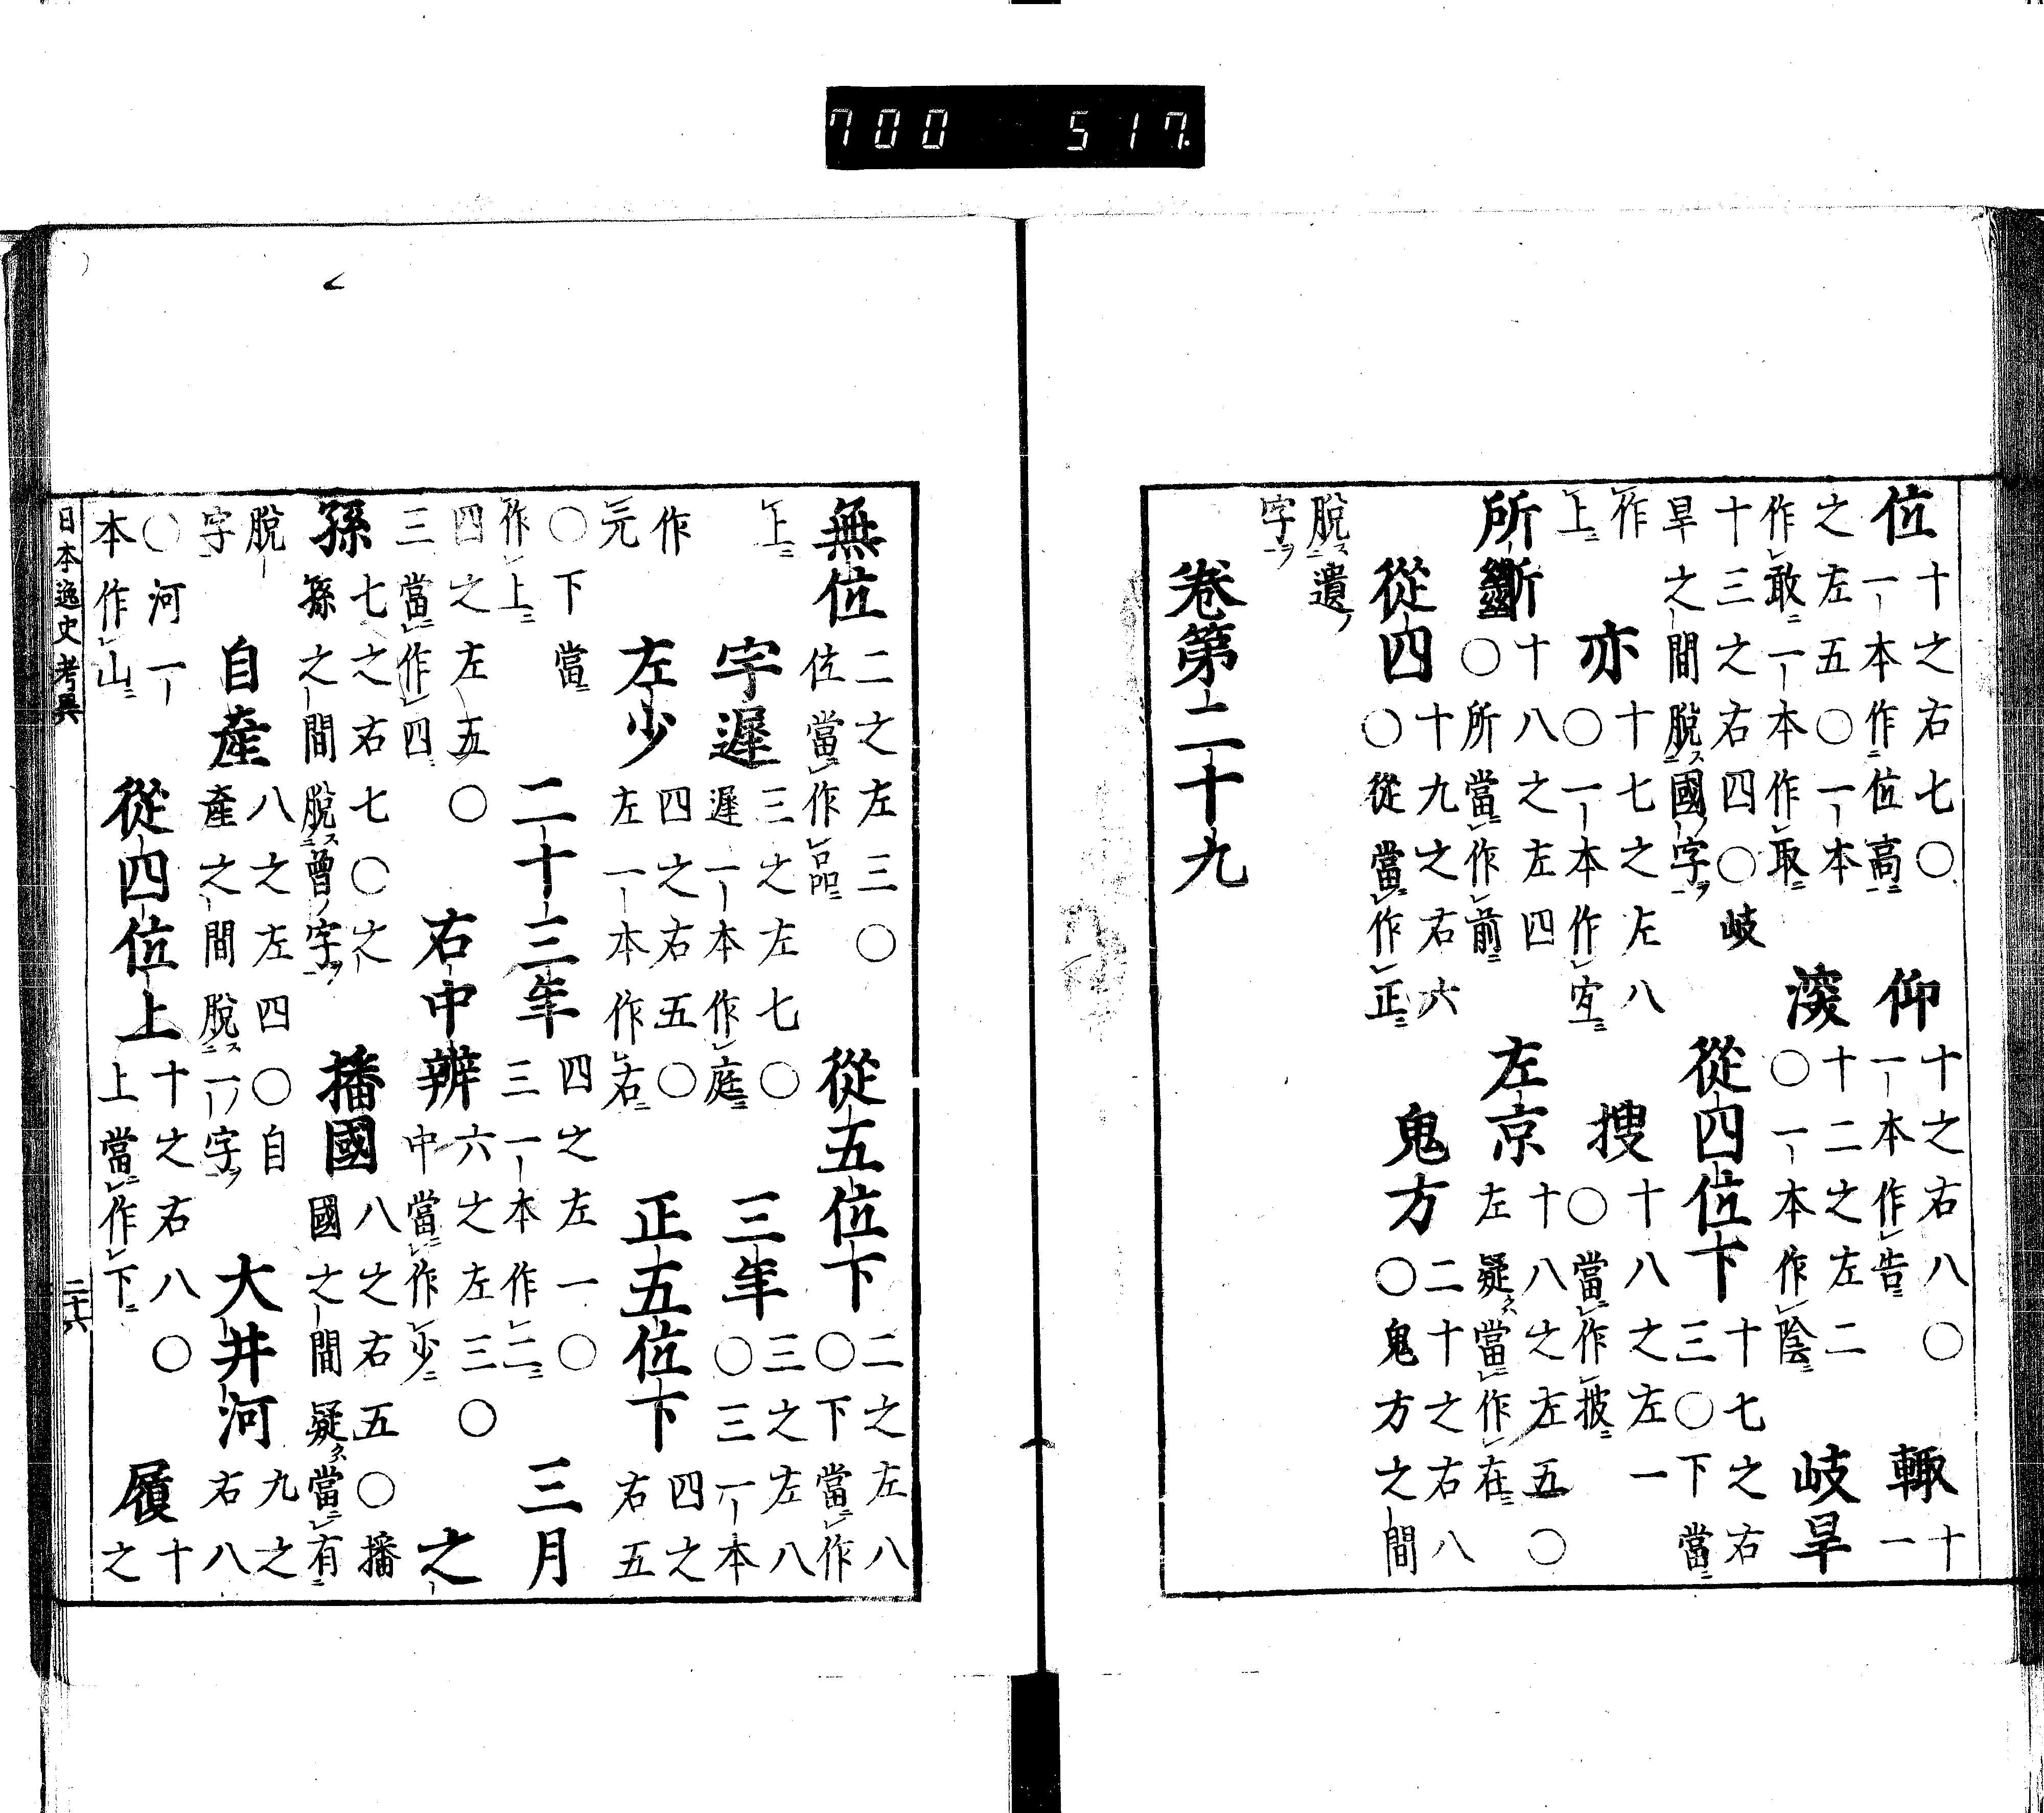 700 517
位十之右七〇一本作位高仰十之右八〇一本作告輙十一
之左五〇一本作敢一本作取 十二之左二〇一本作陰岐旱
十三之右四〇岐旱之間脫國字從四位下十七之右三〇下當
作上亦十七之左八〇一本作宐搜十八之左一〇當作披
所斷十八之左四〇所當作前左京十八之左五〇左疑當作在
從四十九之右六〇從當作正鬼方二十之右八〇鬼方之間
脫遺字
卷第二十九
無位二之左三〇位當作品從五位下二之左八〇下當作
上字遲三之左七〇遲一本作庭三年三之左八〇三一本
作元左少四之右五〇左一本作右正五位下四之右五
〇下當作上二十三年四之左一〇三一本作二三月
四之左五〇三當作四右中辨六之左三〇中當作少之
孫七之右七〇之孫之間脫曾字播國八之右五〇播國之間疑當有
脫字自產八之左四〇自產之間脫一字大井河九之右八
〇河一本作山從四位上十之右八〇上當作下履十之
日本逸史考異 二十六